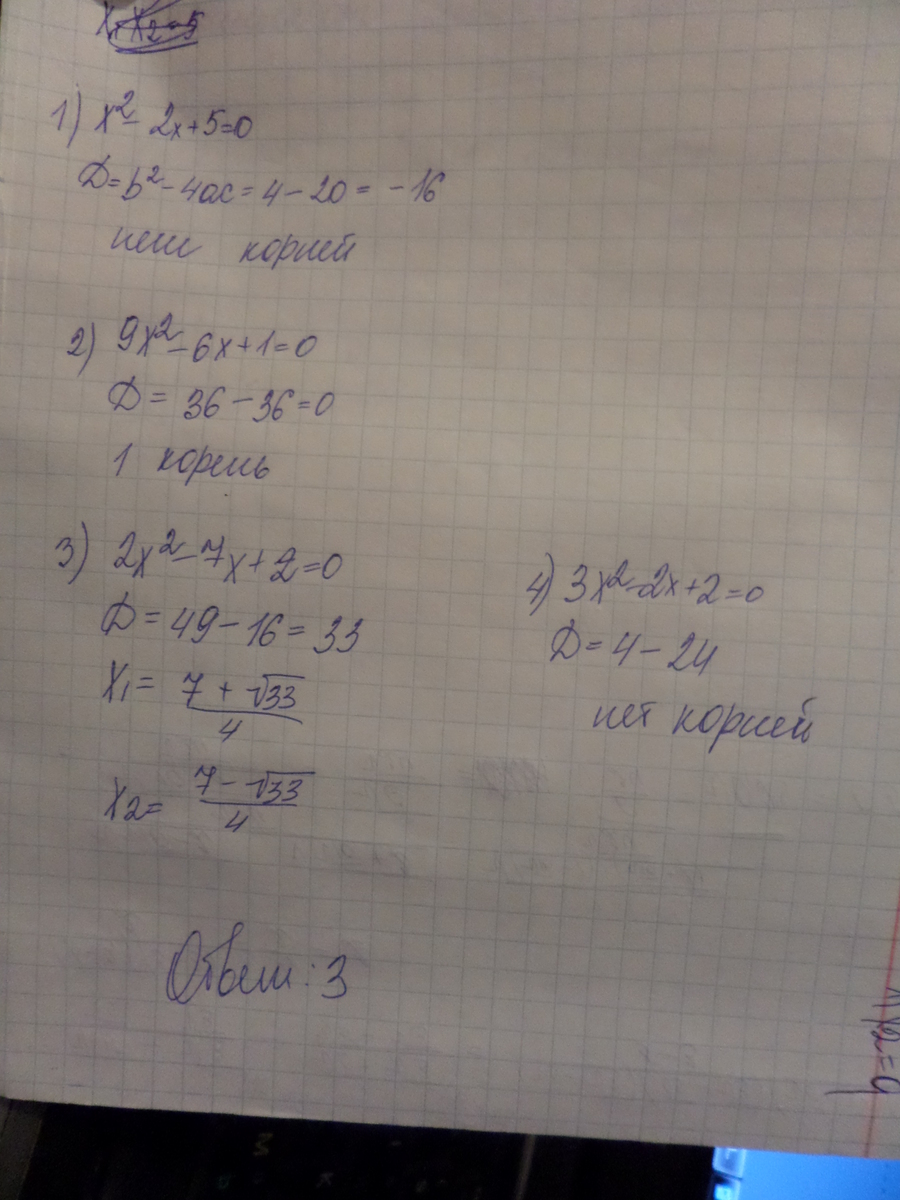 x₁ x₂ = 5
1) x² - 2x + 5 = 0
D = b² - 4ac = 4 - 20 = -16
нет корней
2) 9x² - 6x + 1 = 0
D = 36 - 36 = 0
1 корень
3) 2x² - 7x + 2 = 0
D = 49 - 16 = 33
x₁ = (7 + √33)/4
x₂ = (7 - √33)/4
4) 3x² - 2x + 2 = 0
D = 4 - 24
нет корней
Ответ: 3